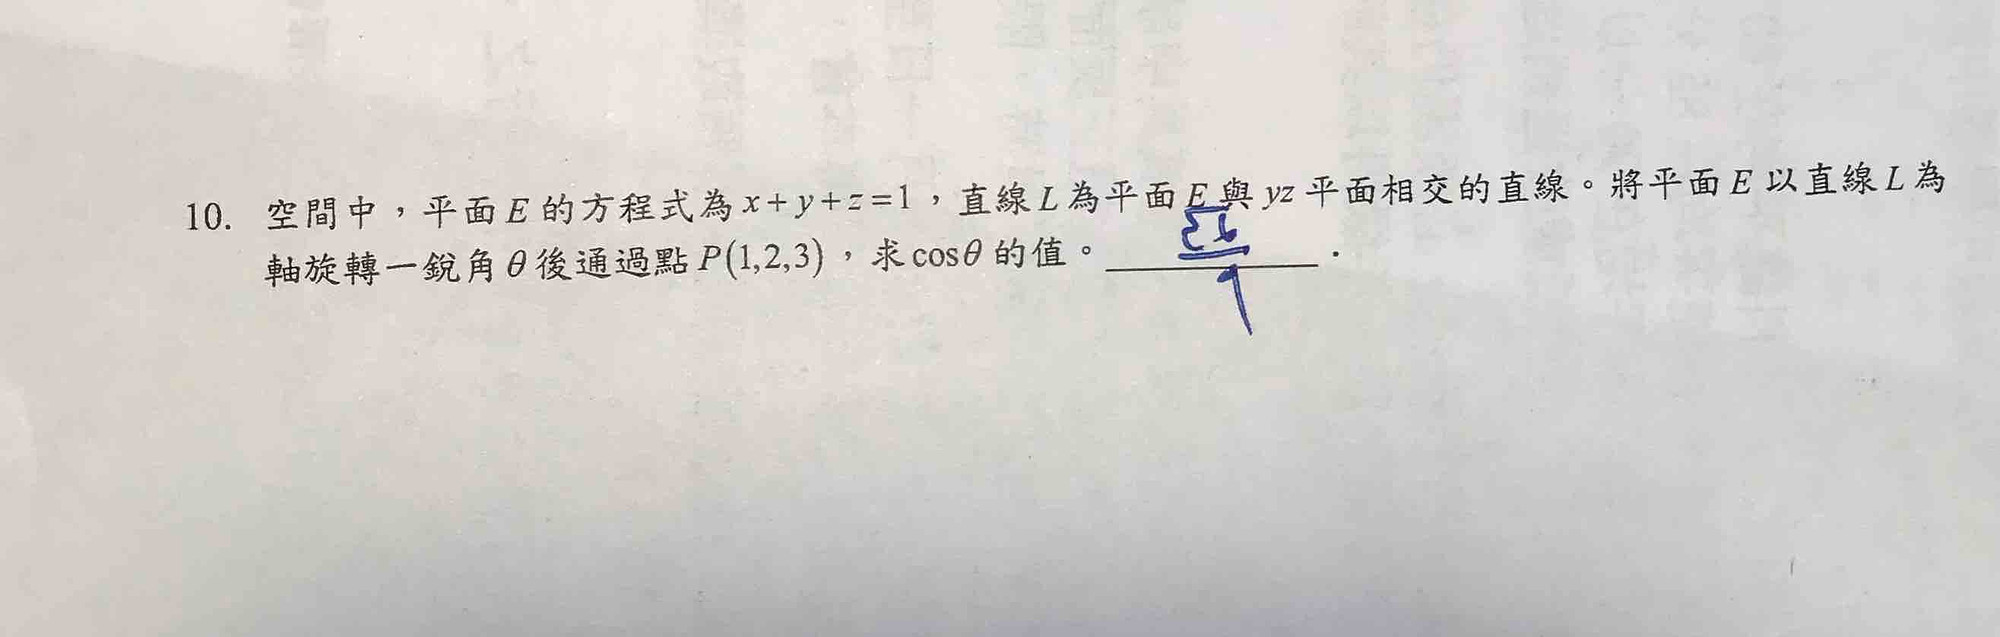 10. 空間中，平面 E 的方程式為 x+y+z=1，直線 L 為平面 E 與 yz 平面相交的直線。將平面 E 以直線 L 為
軸旋轉一銳角 θ 後通過點 P(1,2,3)，求 cosθ 的值。